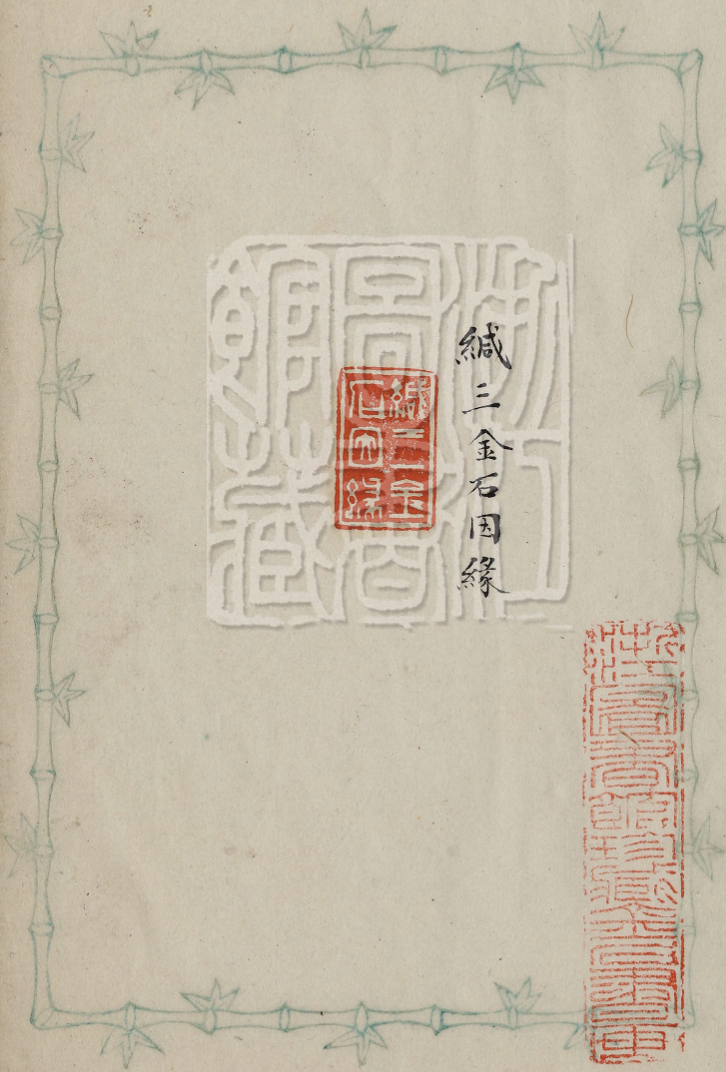 緘三金石因緣
緘三金
石因緣
浙江
圖書
館藏